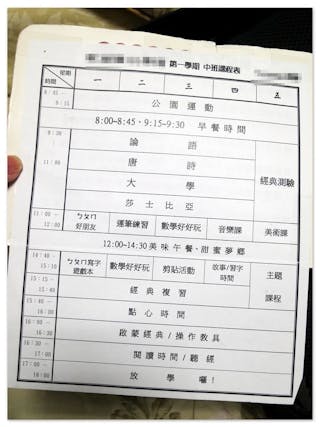 第一學期 中班課程表
星期
時間
一 二 三 四 五
8:45 - 9:15
公園運動
8:00~8:45，9:15~9:30 早餐時間
9:30 - 11:00
論語
唐詩
大學
莎士比亞
經典測驗
11:00 - 12:00
ㄅㄆㄇ好朋友 運筆練習 數學好好玩 音樂課 美術課
12:00~14:30 美味午餐，甜蜜夢鄉
14:40 - 15:10
ㄅㄆㄇ寫字遊戲本 數學好好玩 剪貼活動 故事/習字時間 主題課程
15:15 - 15:40
經典複習
15:40 - 16:00
點心時間
16:00 - 16:30
啟蒙經典/操作教具
16:30 - 17:00
閱讀時間/聽經
17:00 - 18:00
放學囉！